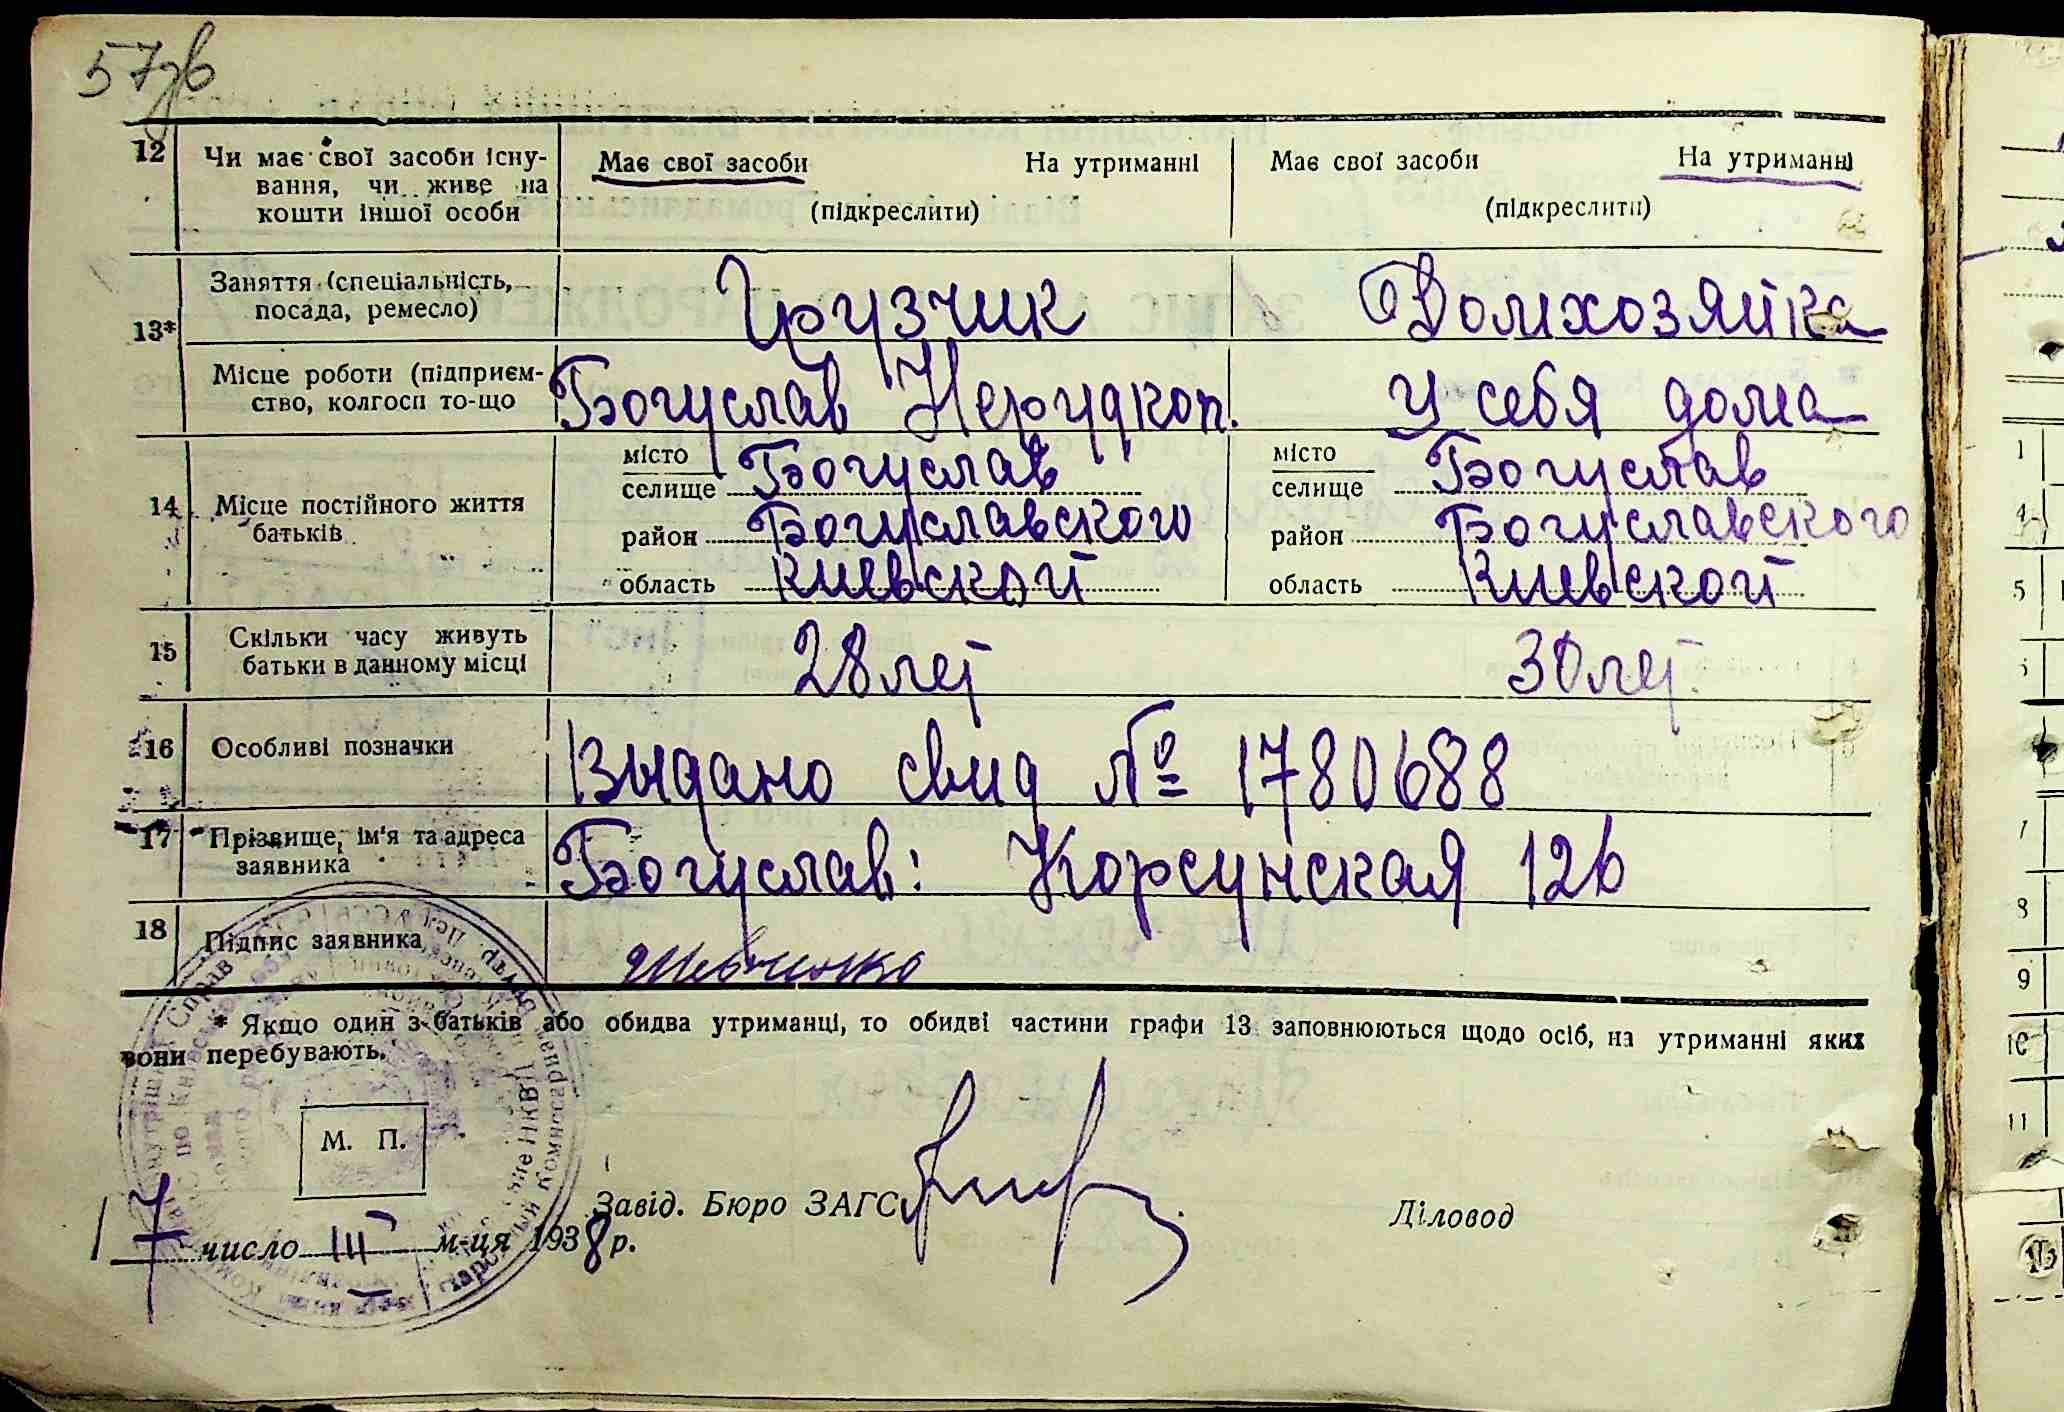 57зв
12 Чи має свої засоби існу- Має свої засоби На утриманні Має свої засоби На утриманні
вання, чи живе на
кошти іншої особи (підкреслити) (підкреслити)
13* Заняття (спеціальність, Грузчик Домхозяйка
посада, ремесло)
Місце роботи (підприєм- Богуслав Нерудкоп. у себя дома
ство, колгосп то-що
14 Місце постійного життя місто Богуслав місто Богуслав
батьків селище селище
район Богуславского район Богуславского
область Киевской область Киевской
15 Скільки часу живуть 28 лет 30 лет
батьки в данному місці
16 Особливі позначки Выдано свид № 1780688
17 Прізвище, ім'я та адреса Богуслав: Корсунская 126
заявника
18 Підпис заявника Шевченко
* Якщо один з батьків або обидва утриманці, то обидві частини графи 13 заповнюються щодо осіб, на утриманні яких
вони перебувають.
М. П.
Завід. Бюро ЗАГС Діловод
17 число III м-ця 1938 р.
1
4
5
6
7
8
9
10
11